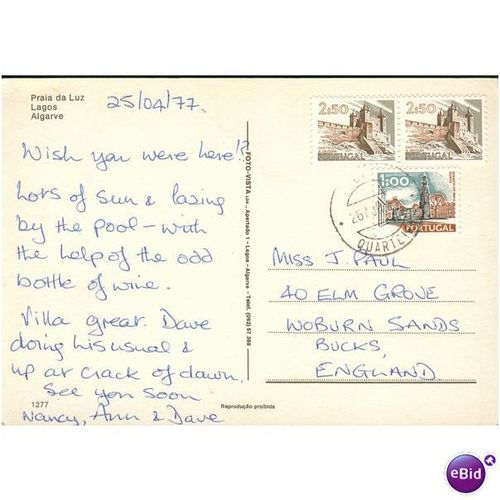 Praia da Luz
Lagos
Algarve
25/04/77.
Wish you were here!?
Lots of sun & lazing
by the pool - with
the help of the odd
bottle of wine.
Villa great. Dave
doing his usual &
up at crack of dawn.
See you soon
Nancy, Ann & Dave
1277
Reprodução proibida
FOTO-VISTA LDA., Apartado 1 - Lagos - Algarve - Telef. (082) 57 388
2$50
PORTUGAL
2$50
PORTUGAL
1$00
PORTUGAL
QUARTE
MISS J. PAUL
40 ELM GROVE
WOBURN SANDS
BUCKS,
ENGLAND.
eBid